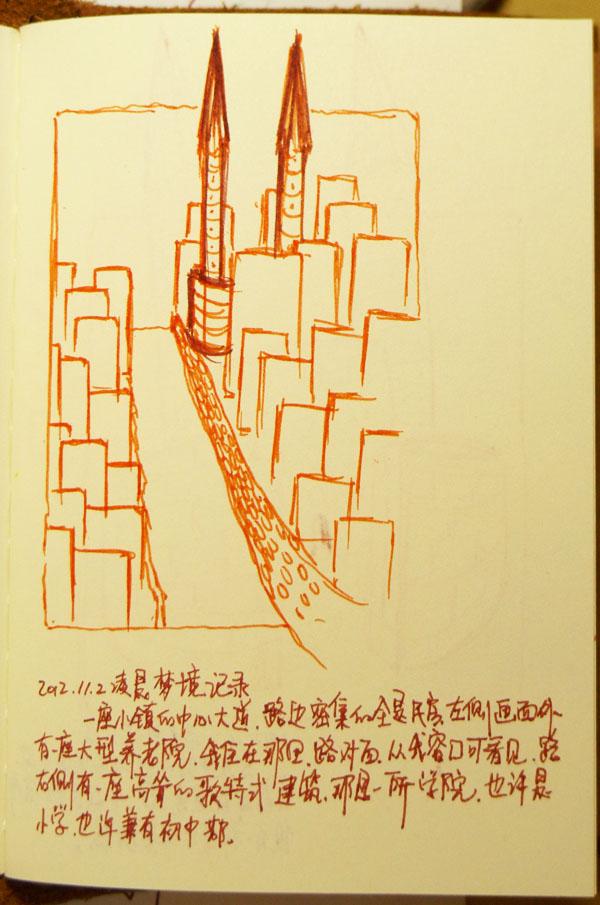 2012.11.2凌晨梦境记录
一座小镇的中心大道,路边密集的全是民房,左侧画面外
有一座大型养老院,我住在那里,路对面,从我窗口可看见,路
右侧有一座高耸的歌特式建筑,那是一所学院,也许是
小学,也许兼有初中部。